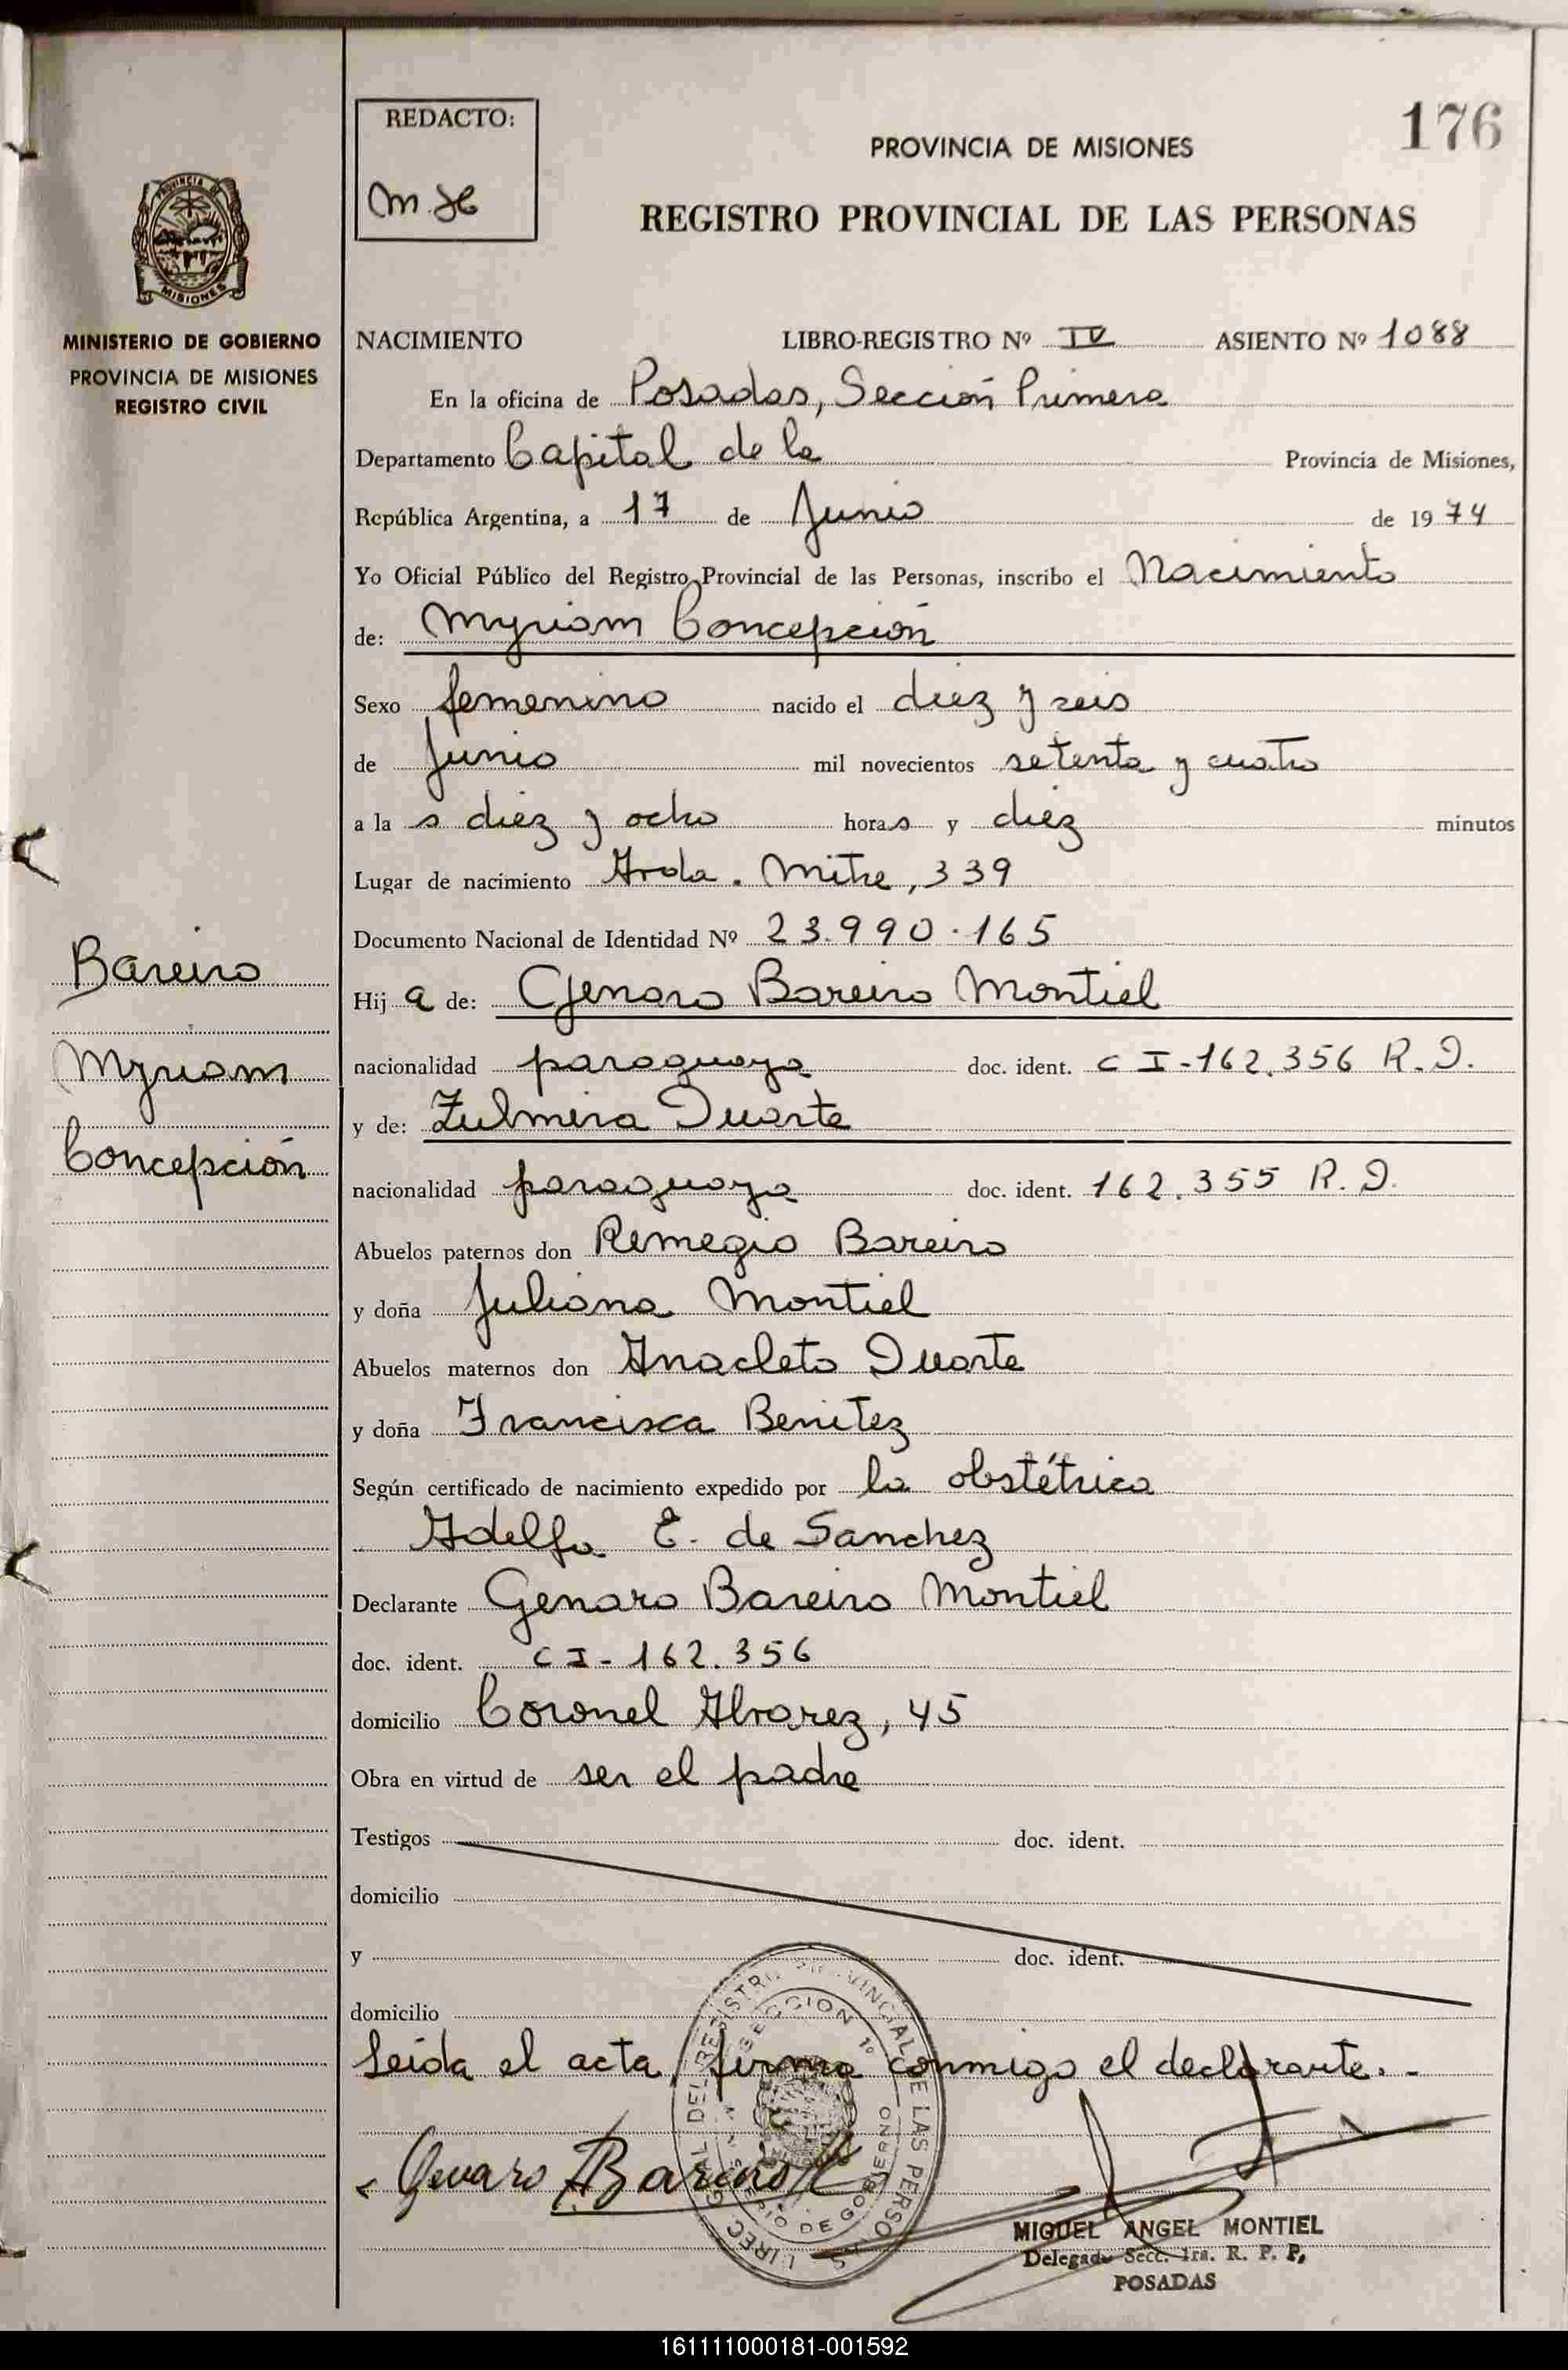 176
REDACTO:
PROVINCIA DE MISIONES
REGISTRO PROVINCIAL DE LAS PERSONAS
PROVINCIA DE
MISIONES
MINISTERIO DE GOBIERNO
PROVINCIA DE MISIONES
REGISTRO CIVIL
NACIMIENTO LIBRO-REGISTRO Nº IV ASIENTO Nº 1088
En la oficina de Posadas, Sección Primera
Departamento Capital de la Provincia de Misiones,
República Argentina, a 17 de Junio de 1974
Yo Oficial Público del Registro Provincial de las Personas, inscribo el Nacimiento
de: Myriam Concepción
Sexo femenino nacido el diez y seis
de Junio mil novecientos setenta y cuatro
a las diez y ocho horas y diez minutos
Lugar de nacimiento Avda. Mitre, 339
Documento Nacional de Identidad Nº 23.990.165
Bareiro
Myriam
Concepción
Hija de: Genaro Bareiro Montiel
nacionalidad paraguaya doc. ident. CI-162.356 R.D.
y de: Zulmira Duarte
nacionalidad paraguaya doc. ident. 162.355 R.D.
Abuelos paternos don Remegio Bareiro
y doña Juliana Montiel
Abuelos maternos don Anacleto Duarte
y doña Francisca Benitez
Según certificado de nacimiento expedido por la obstétrica
Adelfa E. de Sanchez
Declarante Genaro Bareiro Montiel
doc. ident. CI-162.356
domicilio Coronel Alvarez, 45
Obra en virtud de ser el padre
Testigos doc. ident.
domicilio
y doc. ident.
domicilio
Leída el acta, firma conmigo el declarante.-
Genaro Bareiro
MIGUEL ANGEL MONTIEL
Delegado Secc. 1ra. R. P. P.
POSADAS
161111000181-001592